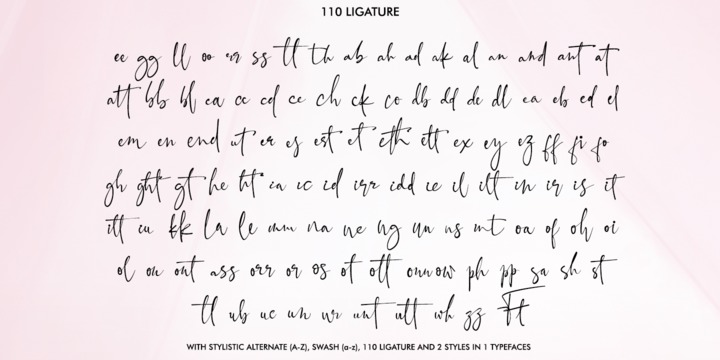 110 LIGATURE
ee gg ll oo rr ss tt th ab ah ad ak al an and ant at
att bb bl ca cc cd ce ch ck co db dd de dl ea eb ed el
em en end nt er es est et eth ett ex ey ez ff fi fo
gh ght gt he ht ia ic id irr idd ie il ill in ir is it
itt iu kk la le mm na ne ng nn ns nt oa of oh oi
ol on ont ass orr or os ot ott ow ph pp sa sh st
tl ub uc un ur unt utt wh zz Ft
WITH STYLISTIC ALTERNATE (A-Z), SWASH (a-z), 110 LIGATURE AND 2 STYLES IN 1 TYPEFACES